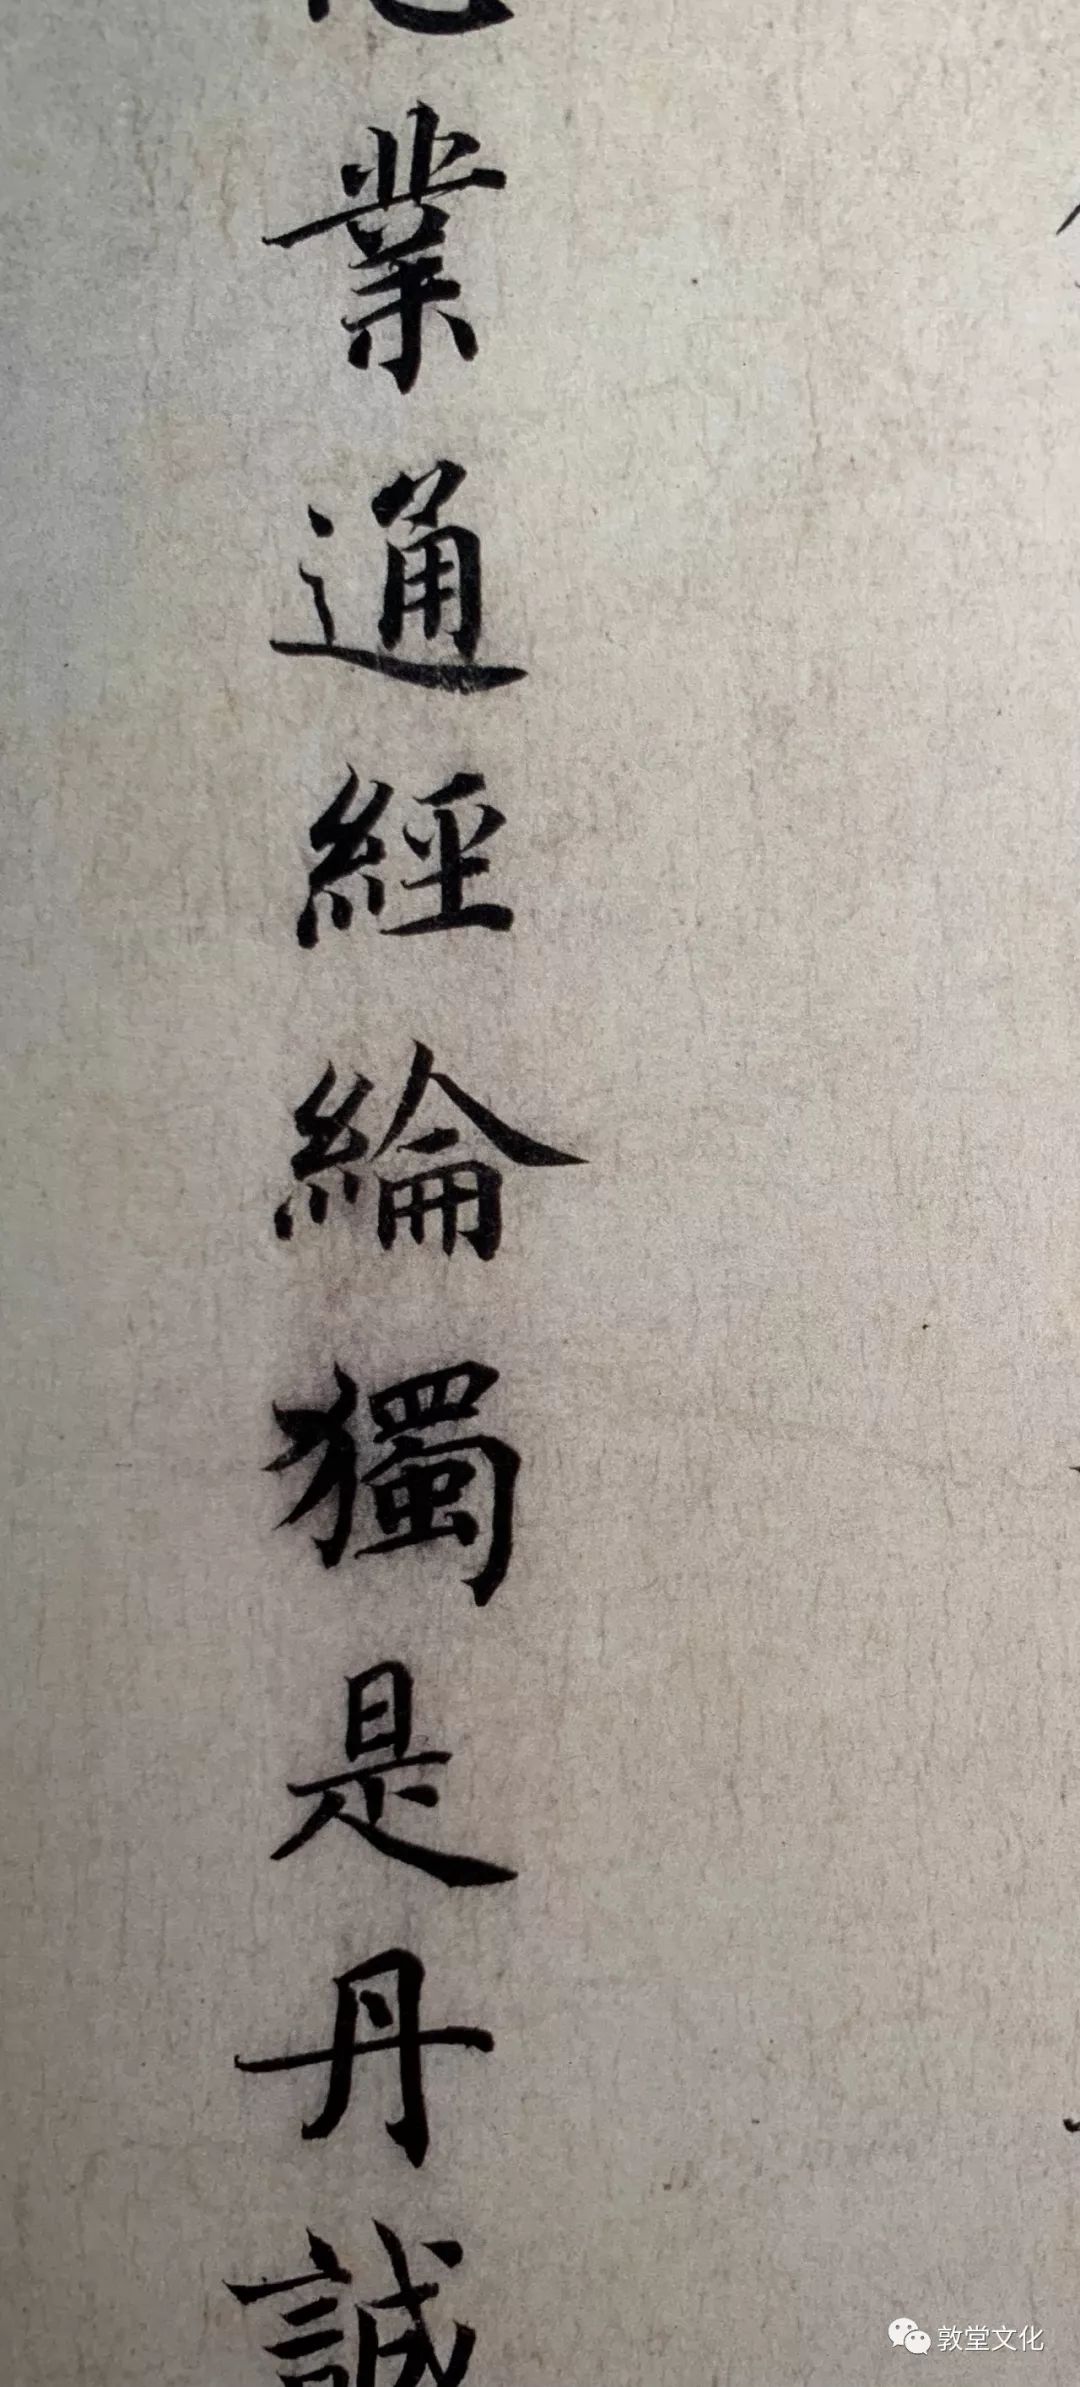 業通經綸獨是丹誠
敦堂文化